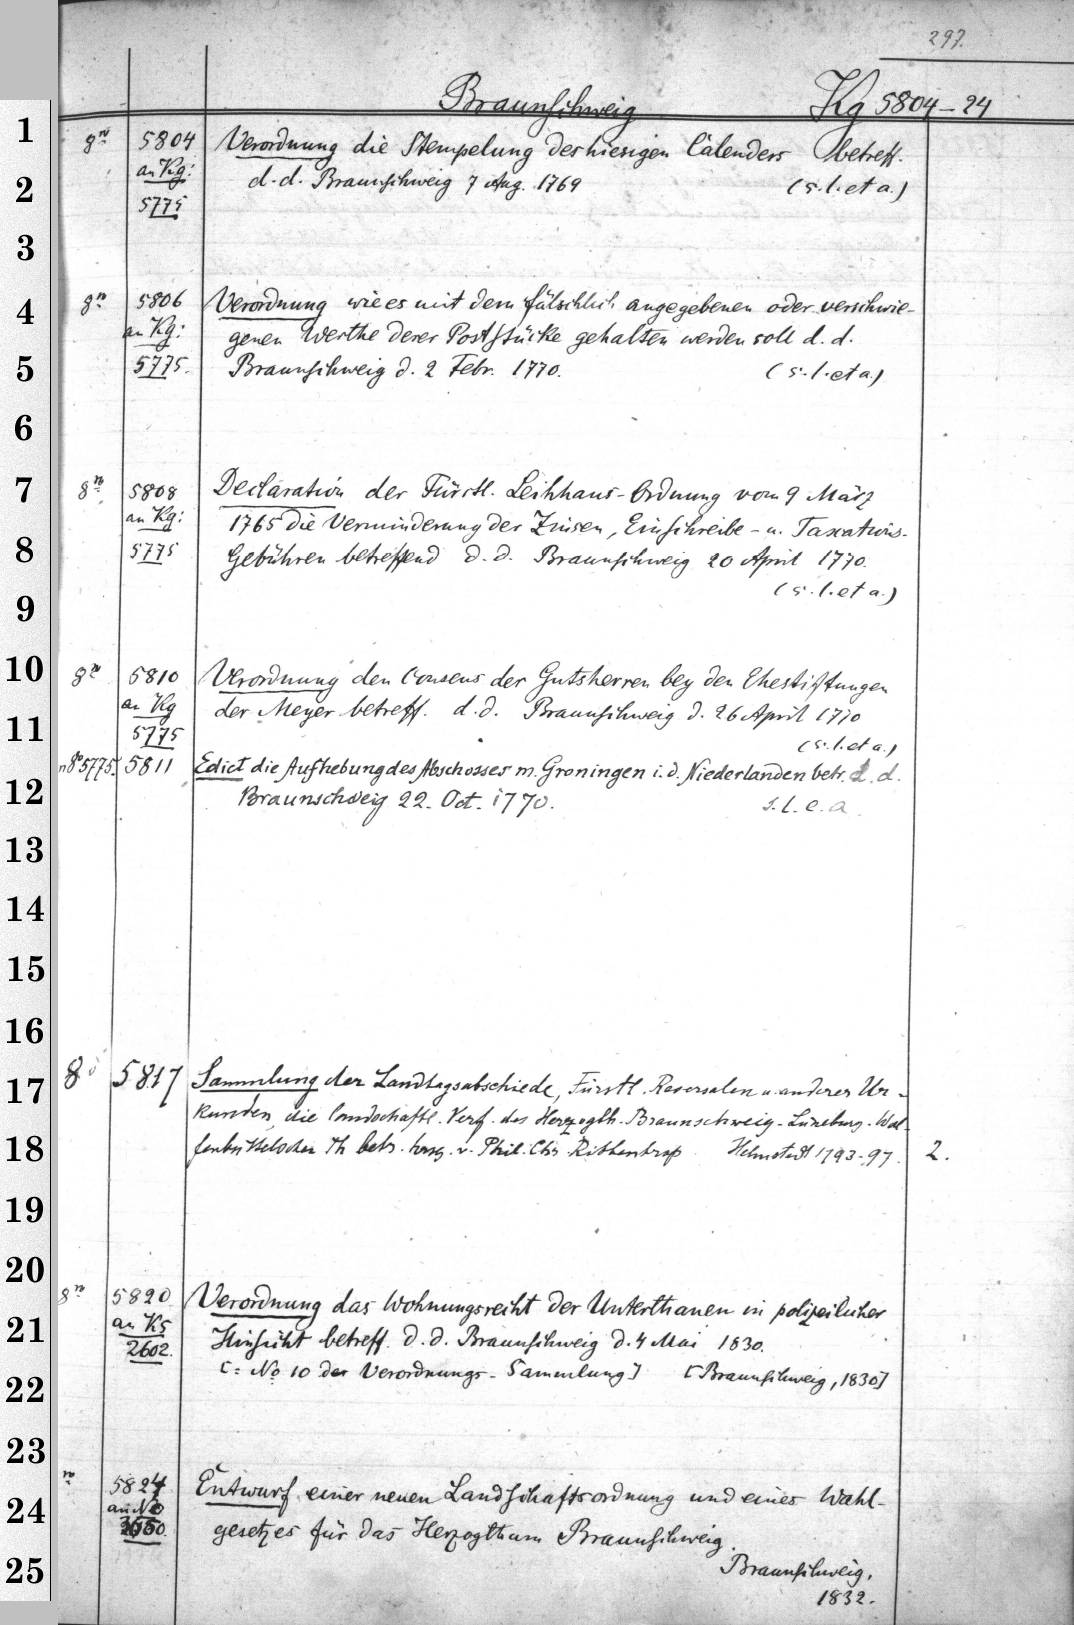 297.
Braunschweig Kg 5804-24
8º 5804 Verordnung die Stempelung des hiesigen Calenders betreff.
an Kg: d. d. Braunschweig 7 Aug. 1769 (s. l. et a.)
5775
8º 5806 Verordnung wie es mit dem fälschlich angegebenen oder verschwie-
an Kg: genen Werthe derer Poststücke gehalten werden soll d. d.
5775. Braunschweig d. 2 Febr. 1770. (s. l. et a.)
8º 5808 Declaration der Fürstl. Leihhaus-Ordnung vom 9 März
an Kg: 1765 die Verminderung der Zinsen, Einschreibe- u. Taxations-
5775 Gebühren betreffend d. d. Braunschweig 20 April 1770.
(s. l. et a.)
8º 5810 Verordnung den Consens der Gutsherren bey den Ehestiftungen
an Kg der Meyer betreff. d. d. Braunschweig d. 26 April 1770
5775 (s. l. et a.)
n 8º 5775. 5811 Edict die Aufhebung des Abschosses m. Groningen i. d. Niederlanden betr. d. d.
Braunschweig 22. Oct. 1770. s. l. e. a.
8º 5817 Sammlung der Landtagsabschiede, Fürstl. Reversalen u. anderer Ur-
kunden, die landschaftl. Verf. des Herzogth. Braunschweig-Lüneburg. Wol-
fenbüttelschen Th. betr. hrsg. v. Phil. Chr. Ribbentrop Helmstedt 1793-97. 2.
8º 5820 Verordnung das Wohnungsrecht der Unterthanen in polizeilicher
an Ks Hinsicht betreff. d. d. Braunschweig d. 4 Mai 1830.
2602. [= No 10 der Verordnungs-Sammlung] [Braunschweig, 1830]
5824 Entwurf einer neuen Landschaftsordnung und eines Wahl-
gesetzes für das Herzogthum Braunschweig.
Braunschweig,
1832.
1
2
3
4
5
6
7
8
9
10
11
12
13
14
15
16
17
18
19
20
21
22
23
24
25